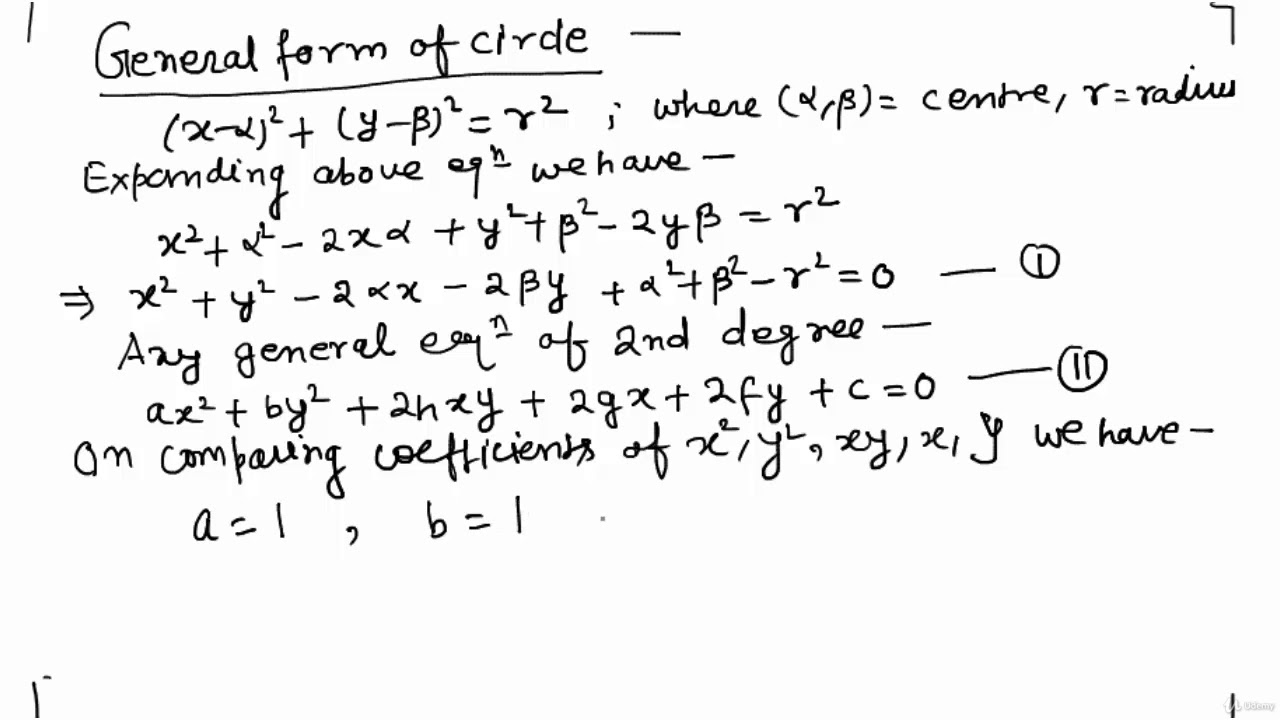 General form of circle —
(x-α)² + (y-β)² = r² ; where (α,β) = centre, r = radius
Expanding above eqⁿ we have —
x² + α² - 2xα + y² + β² - 2yβ = r²
⇒ x² + y² - 2αx - 2βy + α² + β² - r² = 0 — Ⅰ
Any general eqⁿ of 2nd degree —
ax² + by² + 2hxy + 2gx + 2fy + c = 0 — Ⅱ
On comparing coefficients of x², y², xy, x, y we have —
a = 1 , b = 1
Udemy